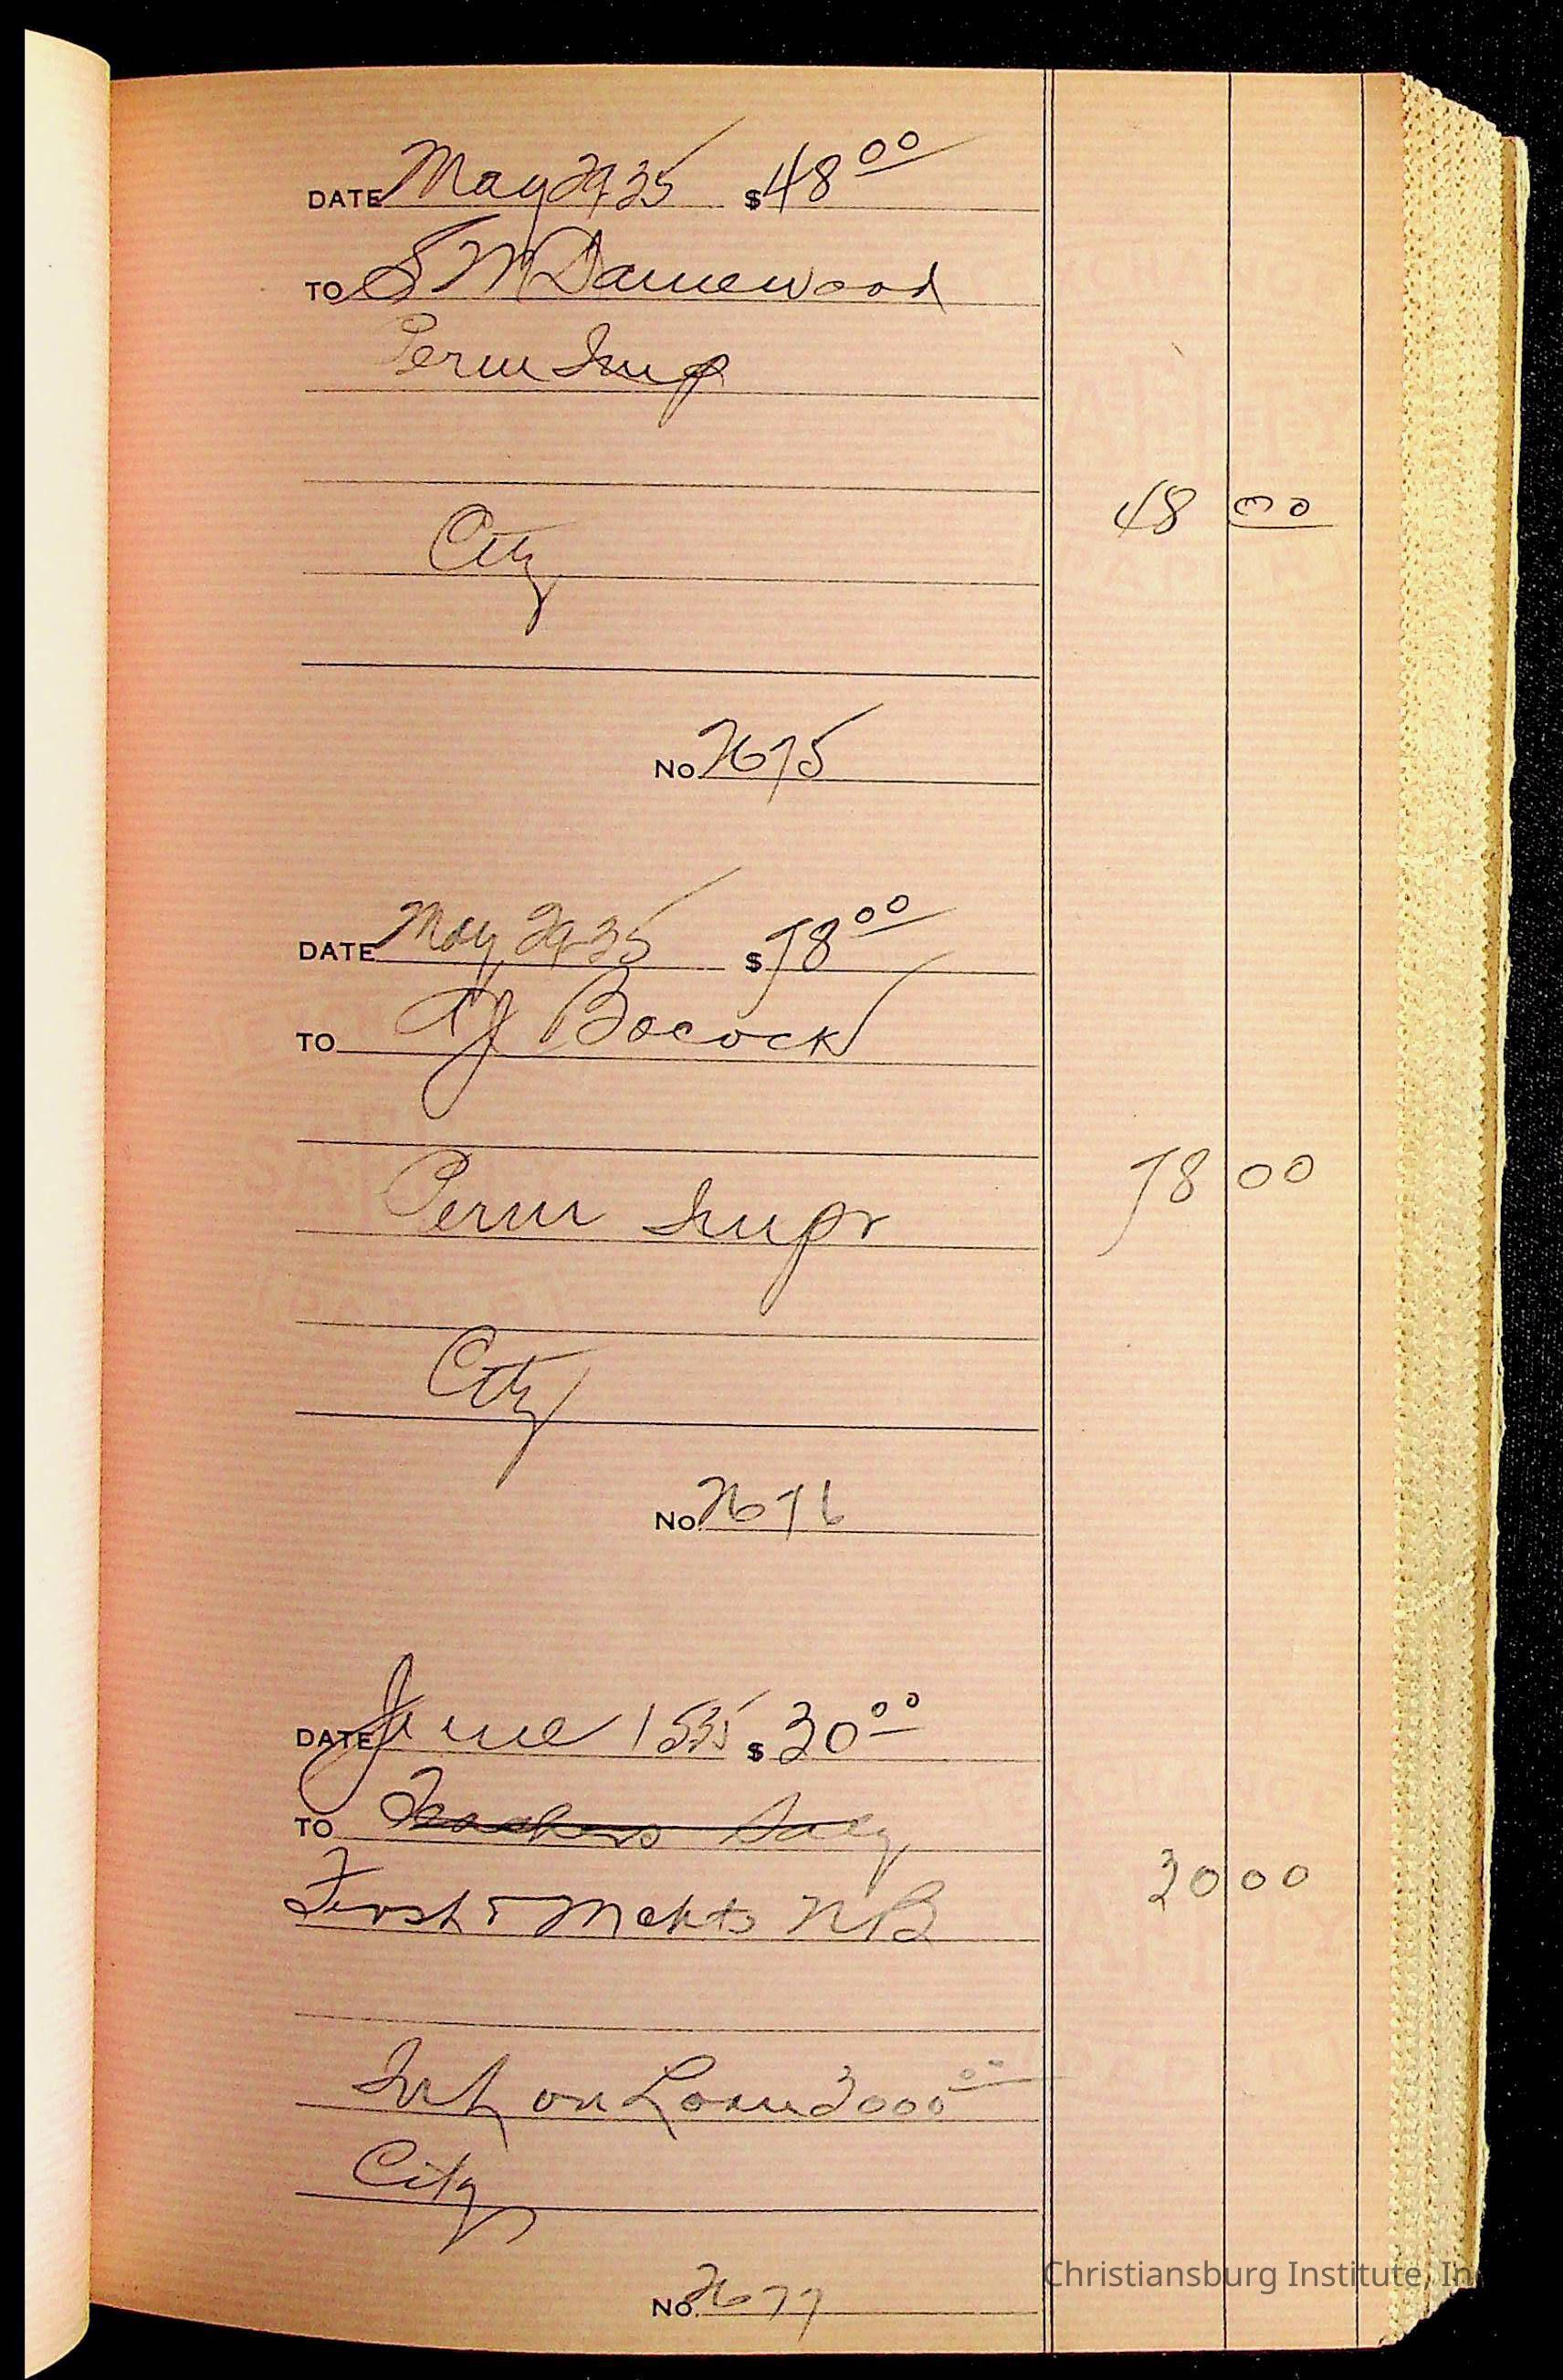 DATE May 29 35 $ 48 00
TO S M Damewood
Perm Imp
48 00
City
No. 2675
DATE May 29 35 $ 78 00
TO A J Bocock
Perm Impr
78 00
City
No. 2676
DATE June 1 535 $ 30 00
TO Teachers Saly
First & Mchts N B
30 00
Int on Loan 3000 00
City
No. 2677
Christiansburg Institute, In